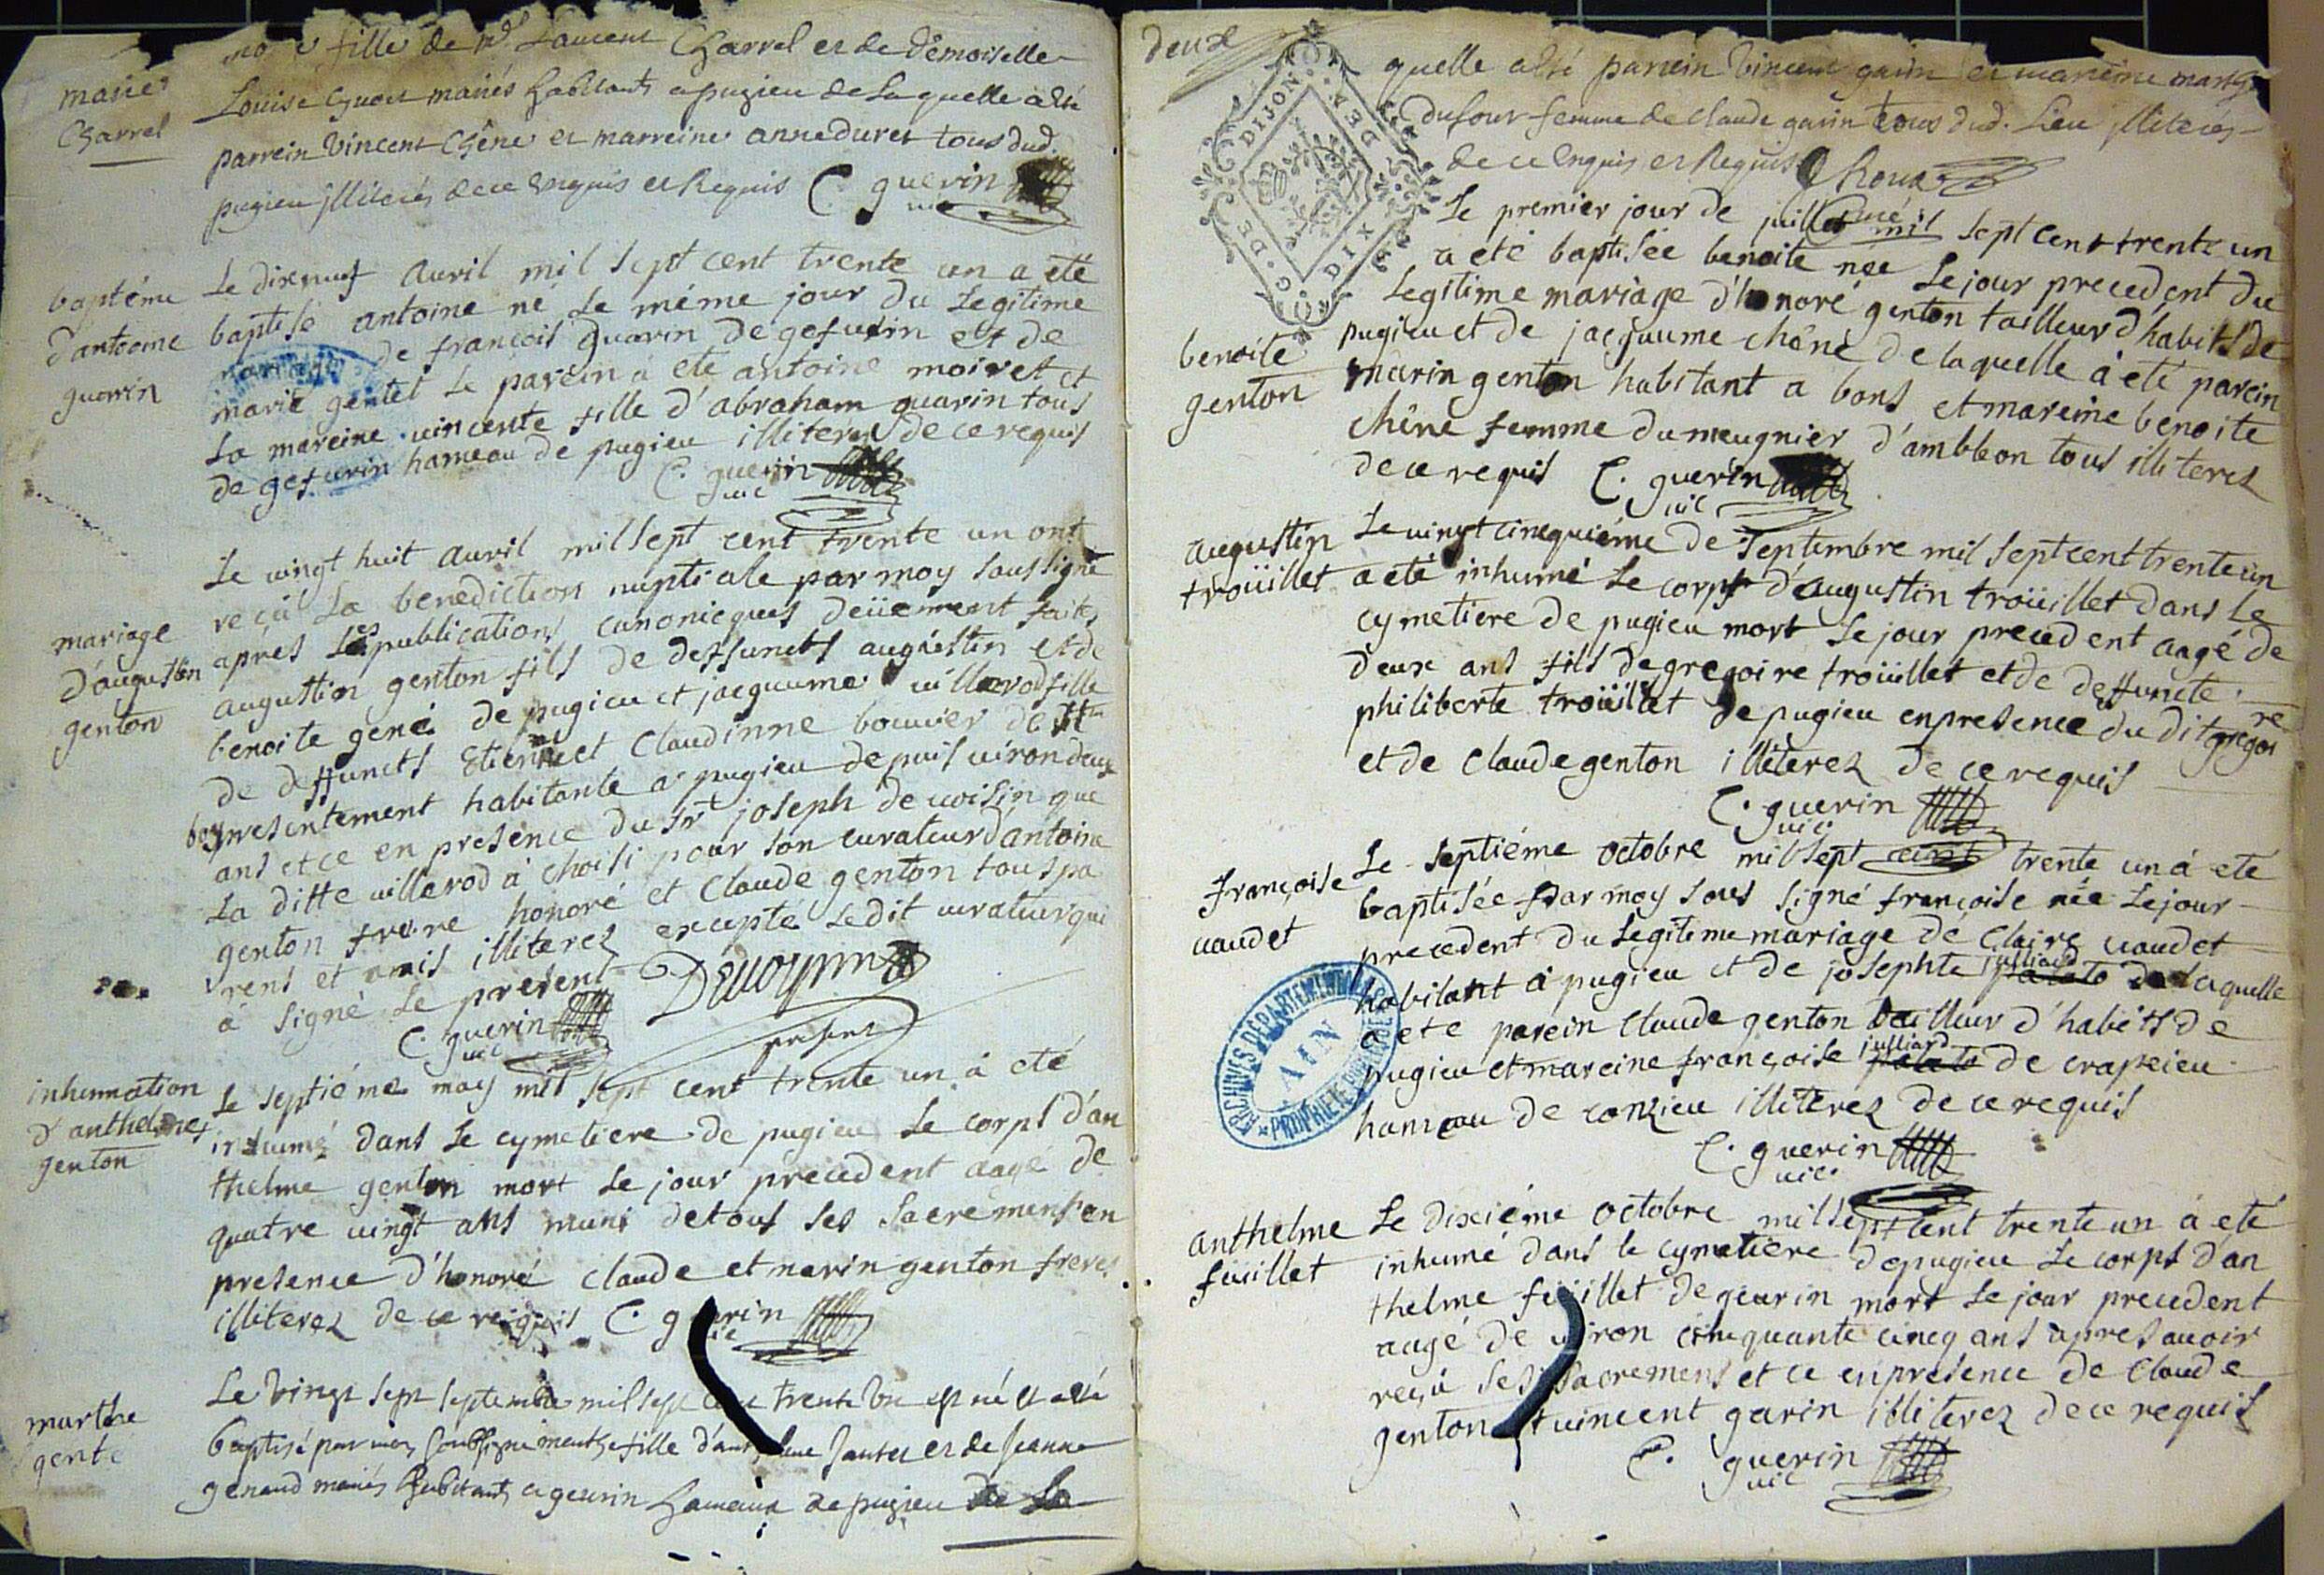 fille de Laurent Charrel et de demoiselle
marie Charrel
Louise mariés habitants a pugieu de Laquelle a été
parrein Vincent Chêne et marreine anne duret tous dud.
pugieu illiterés de ce Enquis et Requis C. guerin
vic
baptéme d'antoine guarin
Le dixneuf avril mil sept cent trente un a eté
baptisé antoine né le méme jour du Legitime
mariage de francois guarin de gesurin et de
marie gentet Le parein a eté antoine moiret et
La mareine vincente fille d'abraham guarin tous
de gesurin hameau de pugieu illiterez de ce requis
C. guerin
vic
mariage d'augustin genton
Le vingt huit avril mil sept cent trente un ont
reçû La benediction nuptiale par moy soussigné
aprés les publications canonicques deüement faites
augustion genton fils de deffuncts augustin et de
benoite gené de pugieu et jacquume villerod fille
de deffuncts Etienne et Claudinne bouvier de St
presentement habitante a pugieu depuis viron deux
ans et ce en presence du sr joseph devoisin que
La ditte villerod a choisi pour son curateur d'antoine
genton frere honoré et Claude genton tous pa
rens et amis illiterez excepté Le dit curateur qui
à signé Le present Devoysin
C. guerin present
vic
inhumation d'anthelme genton
Le septiéme may mil sept cent trente un à eté
inhumé dans Le cymetiere de pugieu Le corps d'an
thelme genton mort Le jour precedent aagé de
quatre vingt ans muni de tous ses sacremens en
presence d'honoré Claude et marin genton freres
illiterez de ce requis C. guerin
vic
marthe
Le Vingt sept septembre mil sept cent trente Un est né et a été
baptisé par moy soussigné marthe fille d'anthelme et de Jeanne
genaud mariés habitants a geurin hameau de pugieu de La
deux
DIJON
DIX DEN
C. DE
quelle a été parrein Vincent garin et mareine marthe
dufour femme de Claude garin tous dud. Lieu illiterés
de ce Enquis et Requis Roux
curé
benoite genton
Le premier jour de juillet mil sept cent trente un
a eté baptisée benoite née Le jour precedent du
Legitime mariage d'honoré genton tailleur d'habits de
pugieu et de jacquume chêne de laquelle a eté parein
marin genton habitant a bons et mareine benoite
chêne femme du meugnier d'ambleon tous illiterez
de ce requis C. guerin
vic
augustin troüillet
Le vingt cinequiéme de septembre mil sept cent trente un
a eté inhumé Le corps d'augustin troüillet dans Le
cymetiere de pugieu mort Le jour precedent aagé de
deux ans fils de gregoire troüillet et de deffuncte
philiberte troüillet de pugieu en presence du dit gregoire
et de Claude genton illiterez de ce requis
C. guerin
vic
françoise vaudet
Le septiéme octobre mil sept cent trente un à eté
baptisée par moy sous signé françoise née Le jour
precedent du Legitime mariage de Claire vaudet
habitant à pugieu et de josephte julliard de laquelle
a eté parein Claude genton tailleur d'habits de
pugieu et mareine françoise julliard de crapeieu
hameau de conzieu illiterez de ce requis
C. guerin
vic
ARCHIVES DEPARTEMENTALES
AIN
PROPRIÉTÉ PUBLIQUE
anthelme feüillet
Le dixiéme octobre mil sept cent trente un à eté
inhumé dans le cymetiere de pugieu Le corps d'an
thelme feüillet de geurin mort Le jour precedent
aagé de viron cinquante cincq ans apres avoir
reçu ses sacremens et ce en presence de Claude
genton et vincent garin illiterez de ce requis
C. guerin
vic